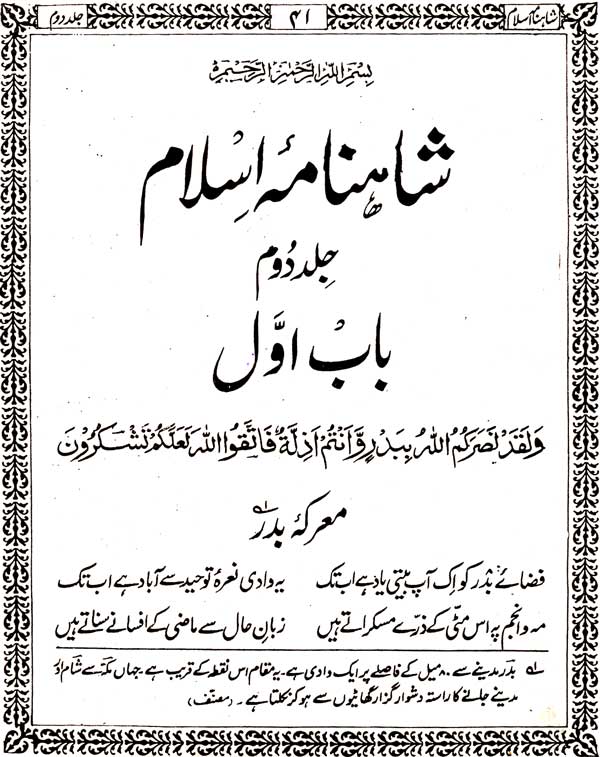 شاہنامۂ اسلام ۴۱ جلد دوم
بِسْمِ اللهِ الرَّحْمٰنِ الرَّحِيْمِ
شاہنامۂ اِسلام
جِلد دُوم
بابْ اوَّل
وَلَقَدْ نَصَرَكُمُ اللهُ بِبَدْرٍ وَّاَنْتُمْ اَذِلَّةٌ فَاتَّقُوا اللهَ لَعَلَّكُمْ تَشْكُرُوْنَ
معرکۂ بدر ؎۱
فضائے بدْر کو اِک آپ بیتی یاد ہے اب تک یہ وادی نعرۂ توحید سے آباد ہے اب تک
مہ و انجم پہ اس مٹّی کے ذرے مسکراتے ہیں زبانِ حال سے ماضی کے افسانے سناتے ہیں
؎۱ بدر مدینے سے ۸۰ میل کے فاصلے پر ایک وادی ہے۔ یہ مقام اس نقطہ کے قریب ہے جہاں مکّہ سے شام اور
مدینے جانے کا راستہ دشوار گزار گھاٹیوں سے ہو کر نکلتا ہے۔ (مصنّف)